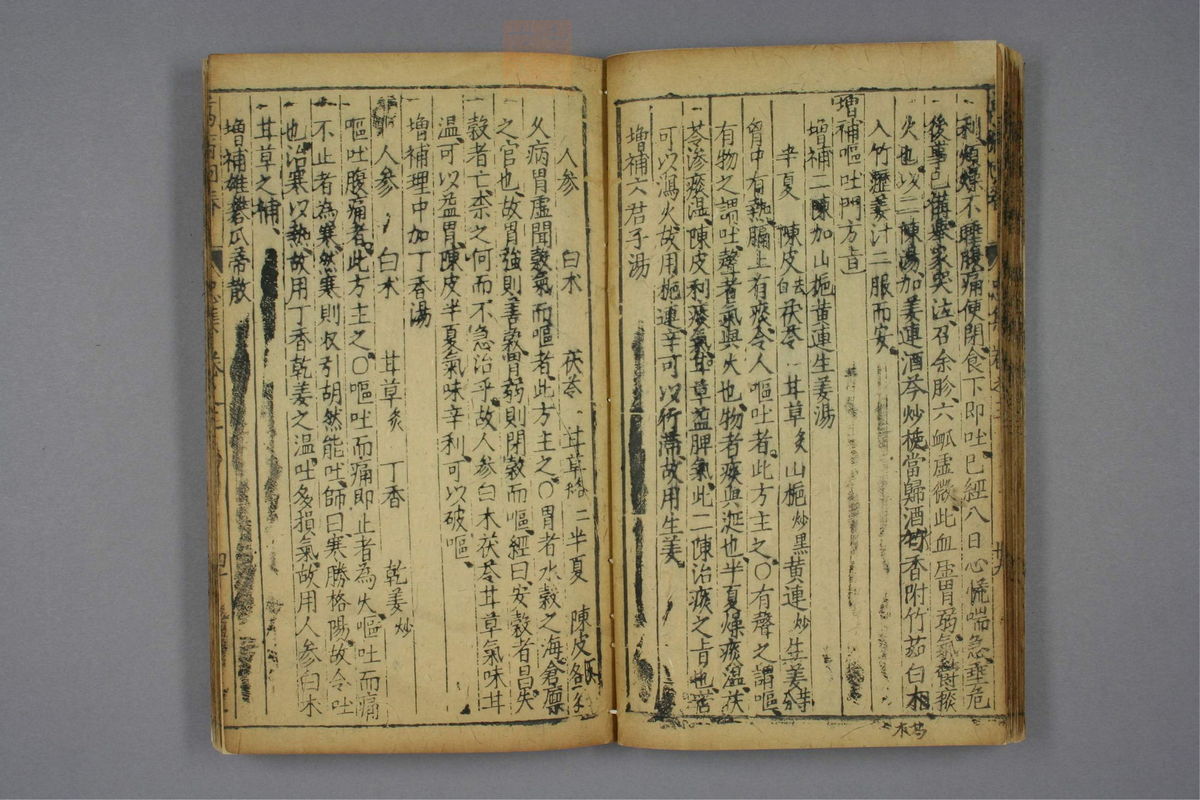 利煩燥不睡腹痛便閉食下即吐已經八日心慌喘急垂危
後事已備舉家哭泣召余胗六脉虛微此血虛胃弱氣欝
火也以二陳湯加姜連酒芩炒梔當歸酒芍香附竹茹白术
入竹瀝姜汁二服而安
增補嘔吐門方旨
增補二陳加山梔黃連生姜湯
半夏 陳皮去白 茯苓 甘草炙 山梔炒黑 黃連炒 生姜等分
胷中有熱膈上有痰令人嘔吐者此方主之〇有聲之謂嘔
有物之謂吐聲者氣與火也物者痰與涎也半夏燥痰溫茯
苓滲痰濕陳皮利痰氣甘草益脾氣此二陳治痰之旨也苦
可以瀉火故用梔連辛可以行滯故用生姜
增補六君子湯
人參 白术 茯苓 甘草 半夏 陳皮
久病胃虛聞穀氣而嘔者此方主之〇胃者水穀之海倉廩
之官也故胃強則善穀胃弱則閉穀而嘔經曰安穀者昌失
穀者亡柰之何而不急治乎故人參白术茯苓甘草氣味甘
溫可以益胃陳皮半夏氣味辛利可以破嘔
增補理中加丁香湯
人參 白术 甘草炙 丁香 乾姜炒
嘔吐腹痛者此方主之〇嘔吐而痛即止者為火嘔吐而痛
不止者為寒然寒則收引胡然能吐師曰寒勝格陽故令吐
也治寒以熱故用丁香乾姜之溫吐多損氣故用人參白术
甘草之補
增補雄瓜蒂散